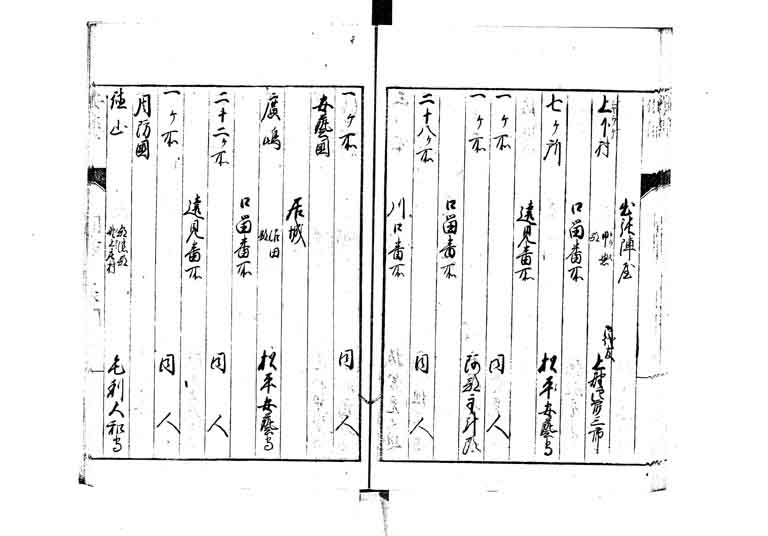 出張陣屋
上下村 甲奴郡
口留番所
七ヶ所 松平安藝守
遠見番所
一ヶ所 同人
一ヶ所 阿部主計頭
口留番所
二十八ヶ所 同人
川口番所
一ヶ所 同人
安藝國
居城
廣嶋 沼田郡 松平安藝守
口留番所
二十二ヶ所 同人
遠見番所
一ヶ所 同人
周防國
徳山 都濃郡 毛利